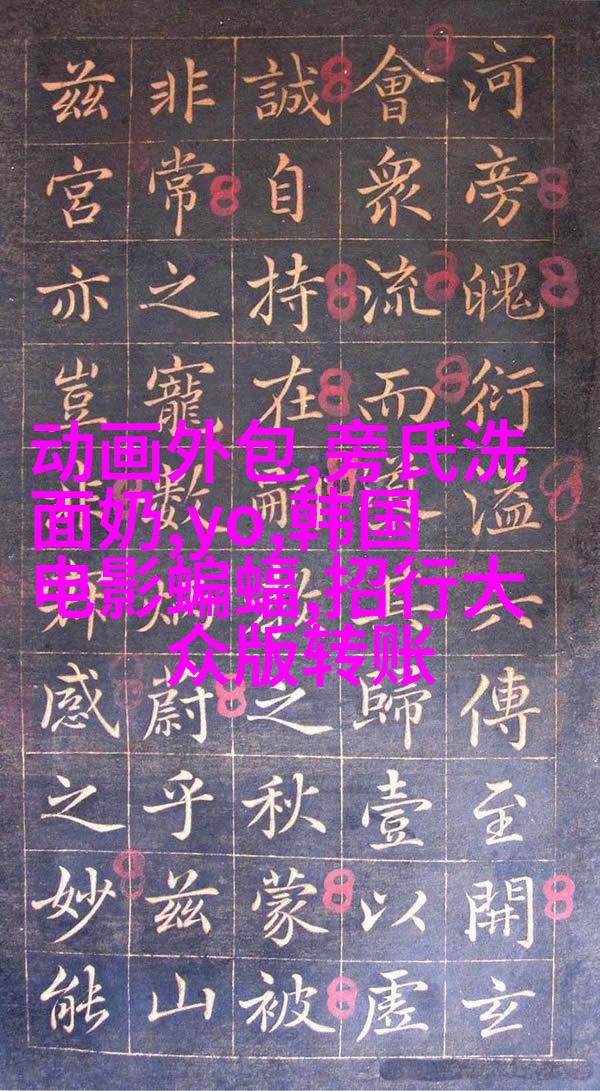 河旁魄衍溢傳至開玄
會眾流而歸壹以虛
誠自持在嗣之秋蒙被
非常之寵數蔚乎茲山
茲宮亦豈感之妙能
动画外包,旁氏洗
面奶,yo,韩国
电影蝙蝠,招行大
众版转账